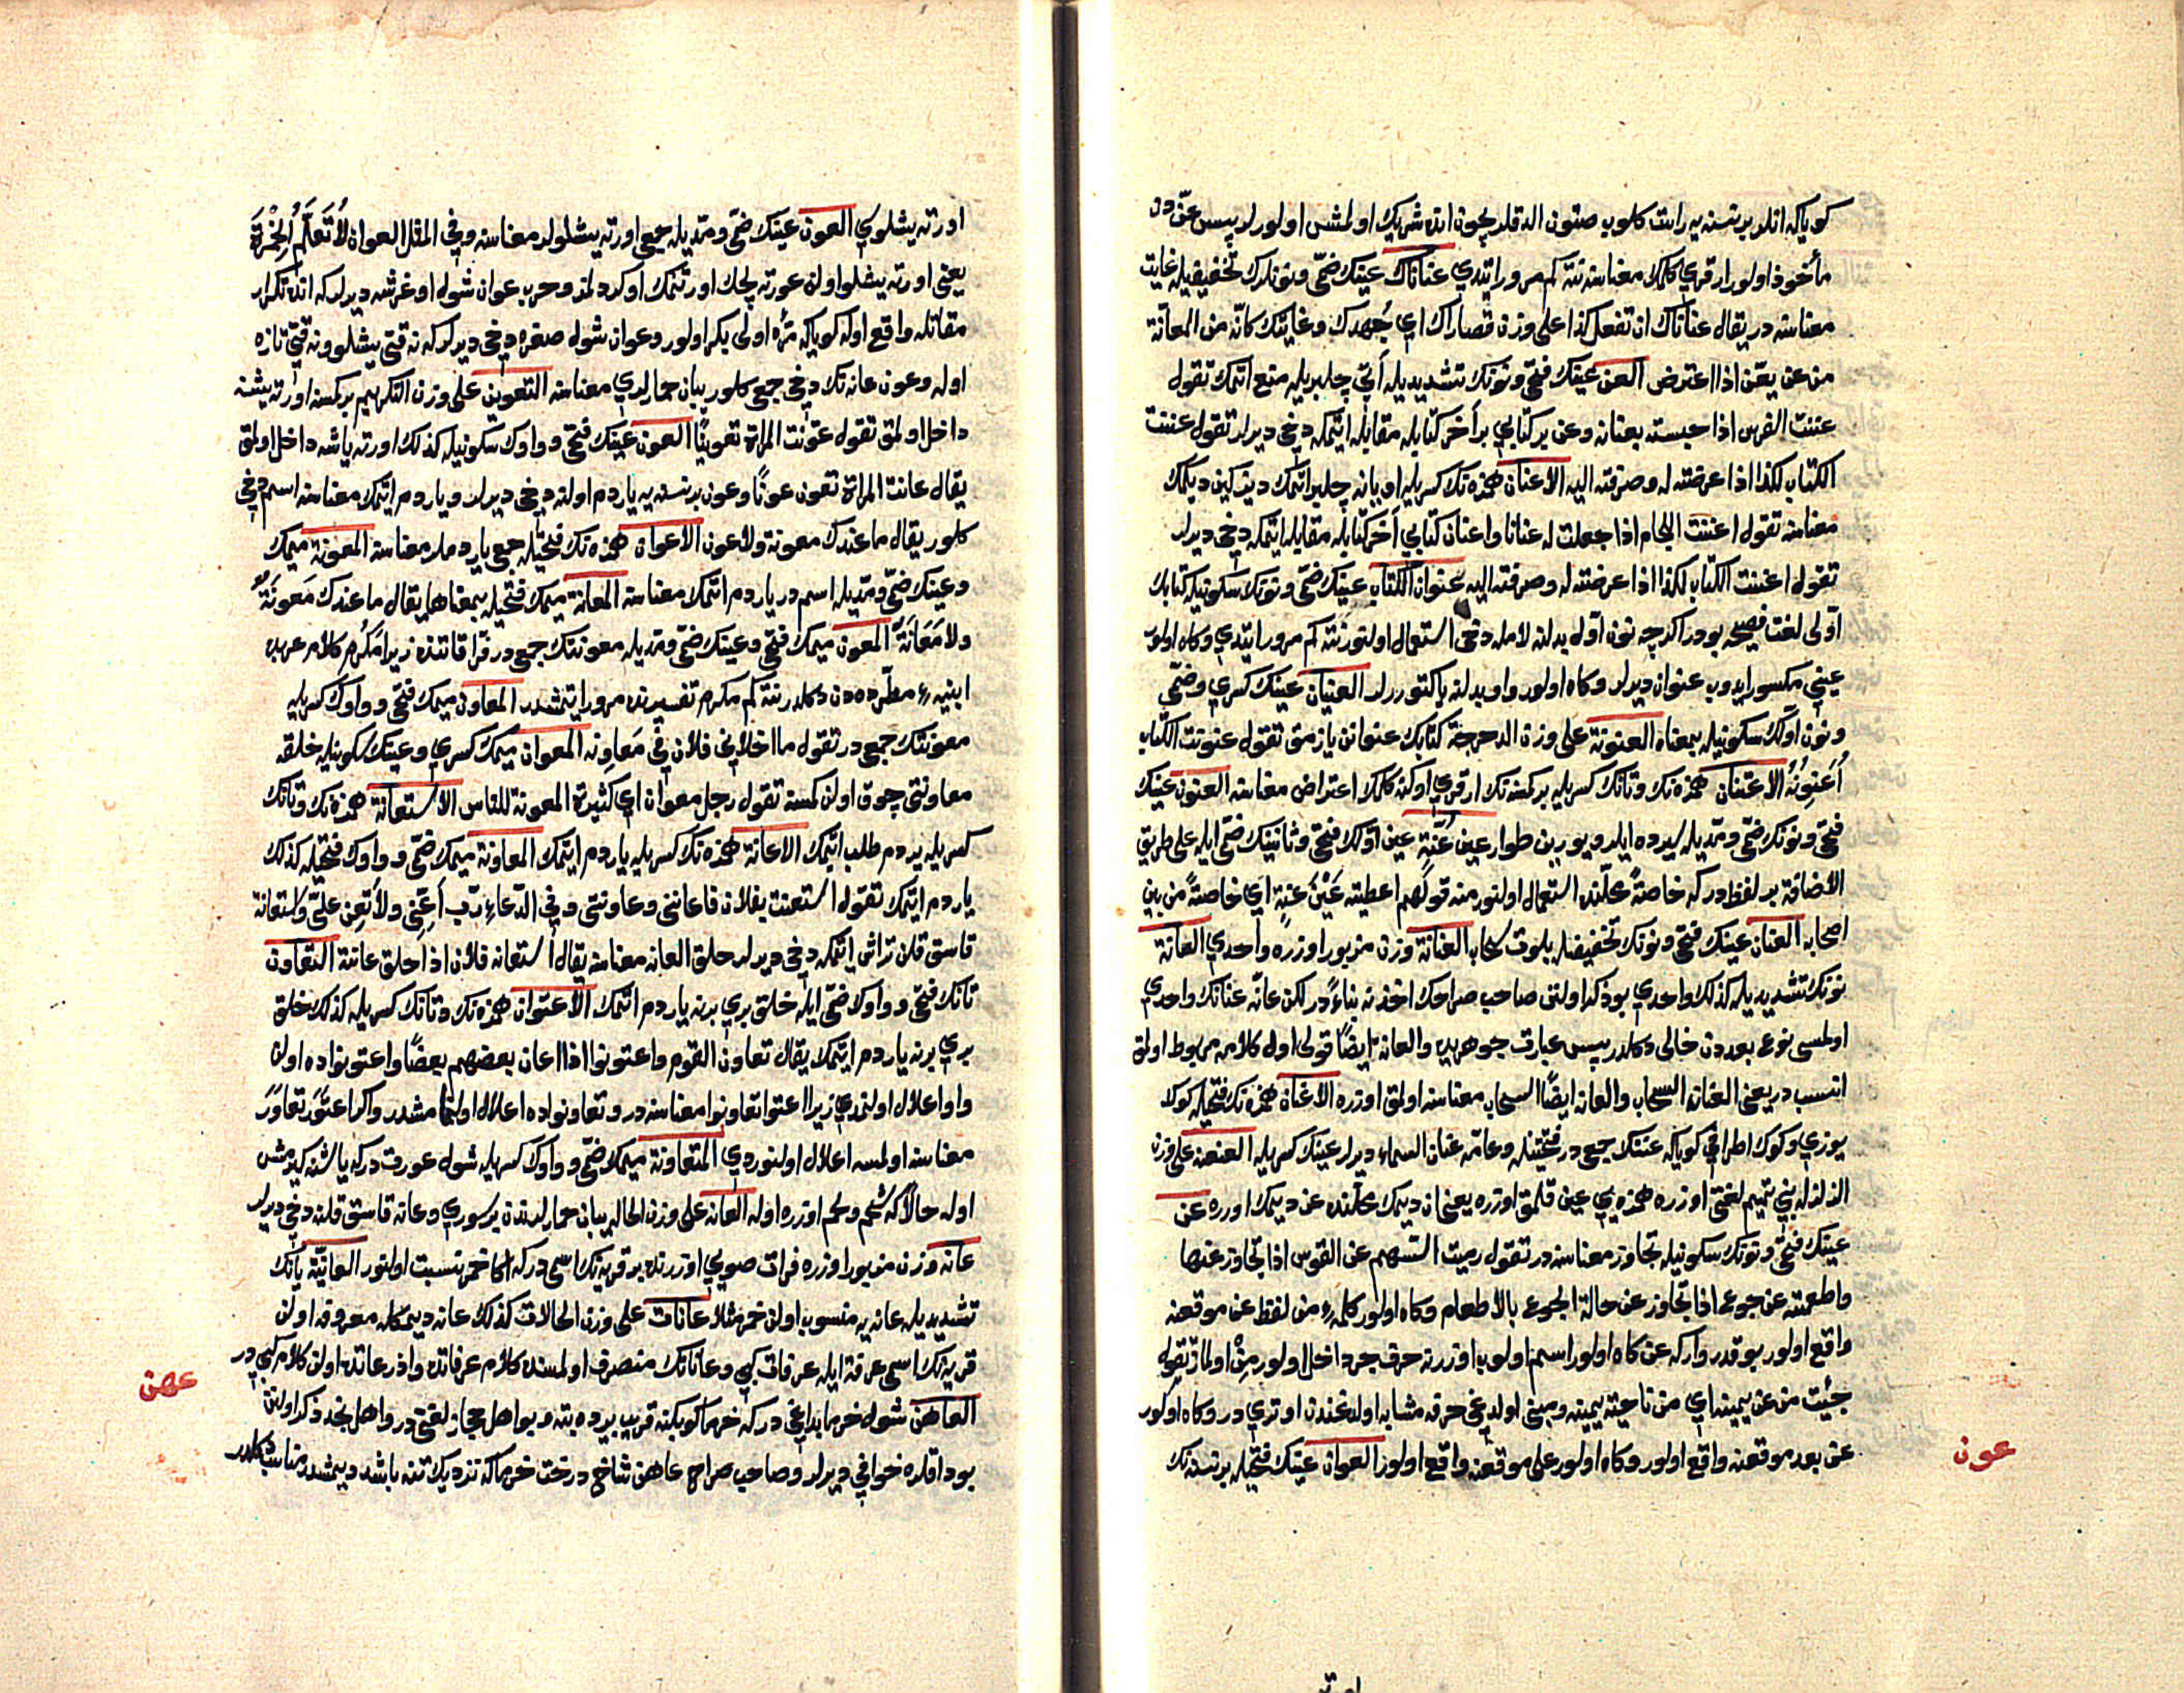 كوياكه انلر بر نسنه يه راست كلوب صتون الدقلريچون انده شريك اولمش اولورلر پيس عنّ دن
مأخوذ اولور ارقرى كلمك معناسنه نته كم مرور ايتدى عناناك عينك ضمّى ونونلرك تخفيفيله غايت
معناسنه در يقال عناناك ان تفعل كذا على وزن قصاراك اى جهدك وغايتك كانّه من المعانّة
من عن يعّن اذا اعترض العن عينك فتحى ونونك تشديديله أتى چلبريله منع اتمك تقول
عننت الفرس اذا حبسته بعنانه وعن بر كتابى بر آخر كتابله مقابله ايتمكه دخى ديرلر تقول عننت
الكتاب لكذا اذا عرضته له وصرفته اليه الاعنان همزه نك كسريله اويانه چلبر اتمك ديزكين ديكمك
معناسنه تقول اعننت اللجام اذا جعلت له عنانا واعنان كتابى آخر كتابله مقابله ايتمكه دخى ديرلر
تقول اعننت الكتاب لكذا اذا عرضته له وصرفته اليه عنوان الكتاب عينك ضمّى ونونك سكونيله كتابك
اوّلى لغت فصيحه بودر اكرچه نون اوّله بدلنه لامله دخى استعمال اولنور نته كم مرور ايتدى وكاه اولور
عينى مكسور ايدوب عنوان ديرلر وكاه اولور واو بدلنه يا كتوررلر العنيان عينك كسرى وضمّى
ونون اوّلك سكونيله بمعناه العنونة على وزن الدحرجة كتابك عنوانن يازمق تقول عنونت الكتاب
أعنونه الاعتنان همزه نك وتانك كسريله بر كمسنه نك ارقرى اوكنه كلمك اعتراض معناسنه العنون عينك
فتحى ونونك ضمّى ومدّيله ايلرو يورين طوار عين عنّة عين اوّلك فتحى وثانينك ضمّى ايله على طريق
الاضافة بر لفظدركه خاصةً محلّنده استعمال اولنور منه قولهم اعطيته عين عنة اى خاصةً من بين
اصحابه العنان عينك فتحى ونونك تخفيفيله بلوت سحاب العنانة وزن مزبور اوزره واحدى العانة
نونك تشديديله كذلك واحدى بو ذكر اولنن صاحب صراحك اخذنه بناءً در لكن عانّه عنانك واحدى
اولمسى نوع بعددن خالى دكلدر پيس عبارت جوهريده والعانه ايضاً قولى اول كلامه مربوط اولمق
انسبدر يعنى العنانة السحاب والعانه ايضاً السحاب معناسنه اولمق اوزره الاعنان همزه نك فتحيله كوكك
يوزى وكوك اطرافى كوياكه عننك جمعيدر فتحتينله وعامّه عنان السماء ديرلر عينك كسريله العنعنه على وزن
الزلزله بنى تميم لغتى اوزره همزه يى عين قلمق اوزره يعنى ان ديمك محلّنده عن ديمك اوزره عن
عينك فتحى ونونك سكونيله تجاوز معناسنه در تقول رميت السّهم عن القوس اذا تجاوز عنها
واطعمته عن جوع اذا تجاوز عن حالة الجوع بالاطعام وكاه اولور كلمهٔ من لفظ عن موقعنه
واقع اولور بو قدر واركه عن كاه اولور اسم اولوب اوزرنه حرف جر داخل اولور من اولماز تقول
جئت من عن يمينه اى من ناحيته يمينه ومبنى اولديغى حرفه مشابه اولدغندن اوتريدر وكاه اولور
عن بعد موقعنه واقع اولور وكاه اولور على موقعنه واقع اولور العوان عينك فتحيله بر نسنه نك
عون
اورته يشلوى العون عينك ضمّى ومدّيله جمعى اورته يشلولر معناسنه وفى المثل العوان لا تعلّم الخمرة
يعنى اورته يشلو اولن عورته پچك اورتمك اوكردلمز وحرب عوان شول اوغرشه ديرلركه انده تكرار
مقاتله واقع اوله كوياكه مرّه اولى بكر اولور وعوان شول صغره دخى ديرلركه نه قتى يشلو ونه قتى تازه
اوله وعون عانه نك دخى جمعى كلور يبان حمارلرى معناسنه التعوين على وزن التكريم بركسنه اورته يشنه
داخل اولمق تقول عوّنت المراة تعويناً العون عينك فتحى وواوك سكونيله كذلك اورته ياشه داخل اولمق
يقال عانت المراة تعون عوناً وعون بر نسنه يه ياردم اولنه دخى ديرلر وياردم اتمك معناسنه اسم دخى
كلور يقال ما عندك معونة ولا عون الاعوان همزه نك فتحيله جمعى ياردملر معناسنه المعونة ميمك
وعينك ضمّى ومدّيله اسمدر ياردم اتمك معناسنه المعانة ميمك فتحيله بمعناها يقال ما عندك معونةٌ
ولا معانةٌ المعون ميمك فتحى وعينك ضمّى ومدّيله معونتك جمعيدر فرّا قاتنده زيرا مكرم كلام عربده
ابنيهٔ مطّرده دن دكلدر نته كم مكرم تفسيرنده مرور ايتمشدر المعاون ميمك فتحى وواوك كسريله
معونتك جمعيدر تقول ما اخلانى فلان فى معاونه المعوان ميمك كسرى وعينك سكونيله خلقه
معاونتى چوق اولن كمسنه تقول رجل معوان اى كثيرة المعونة للناس الاستعانة همزه نك وتانك
كسريله يردم طلب اتمك الاعانة همزه نك كسريله ياردم ايتمك المعاونة ميمك ضمّى وواوك فتحيله كذلك
ياردم ايتمك تقول استعنت بفلان فاعاننى وعاوننى وفى الدّعاء ربّ أعنّى ولا تعن علىّ واستعانة
قاسق قلن تراش ايتمكه دخى ديرلر حلق العانه معناسنه يقال استعانه فلان اذا حلق عانته التعاون
تانك فتحى وواوك ضمّى ايله خلق برى برنه ياردم اتمك الاعتوان همزه نك وتانك كسريله كذلك خلق
برى برنه ياردم ايتمك يقال تعاون القوم واعتونوا اذا اعان بعضهم بعضاً واعتونواده اولن
واو اعلال اولنمدى زيرا اعتوا تعاونوا معناسنه در وتعاونواده اعلال اولنمامشدر واكر اعتون تعاون
معناسنه اولمسه اعلال اولنوردى المتعاونة ميمك ضمّى وواوك كسريله شول عورتدركه ياشنه كيرمش
اوله حالاكه شحم ولحم اوزره اوله العانه على وزن الحاله يبان حمارلرندن بر سورى وعانه قاسق قلنه دخى ديرلر
عانه وزن مزبور اوزره فرات صويى اوزرنده بر قريه نك اسمى دركه اكا خمر نسبت اولنور العانيّة يانك
تشديديله عانه يه منسوب اولن خمر مثلا عانات على وزن الحالات كذلك عانه ديمكله معروف اولن
قريه نك اسمى عرفة ايله عرفات كبى وعاناتك منصرف اولمسنده كلام عرفاتده واذرعاتده اولن كلام كبى در
العاهن شول خرما بداغى دركه خرما كوبكنه قريب يرده بته وبو اهل حجاز لغتى در واهل نجد ذكر اولنن
بوداقلره خوافى ديرلر وصاحب صراح عاهن شاخ درخت خرما كه نزديك تنه باشد ديمشدر مناسب دكلدر
عهن